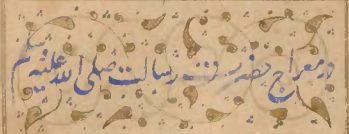 در معراج حضرت رسالت صلی الله علیه وسلم